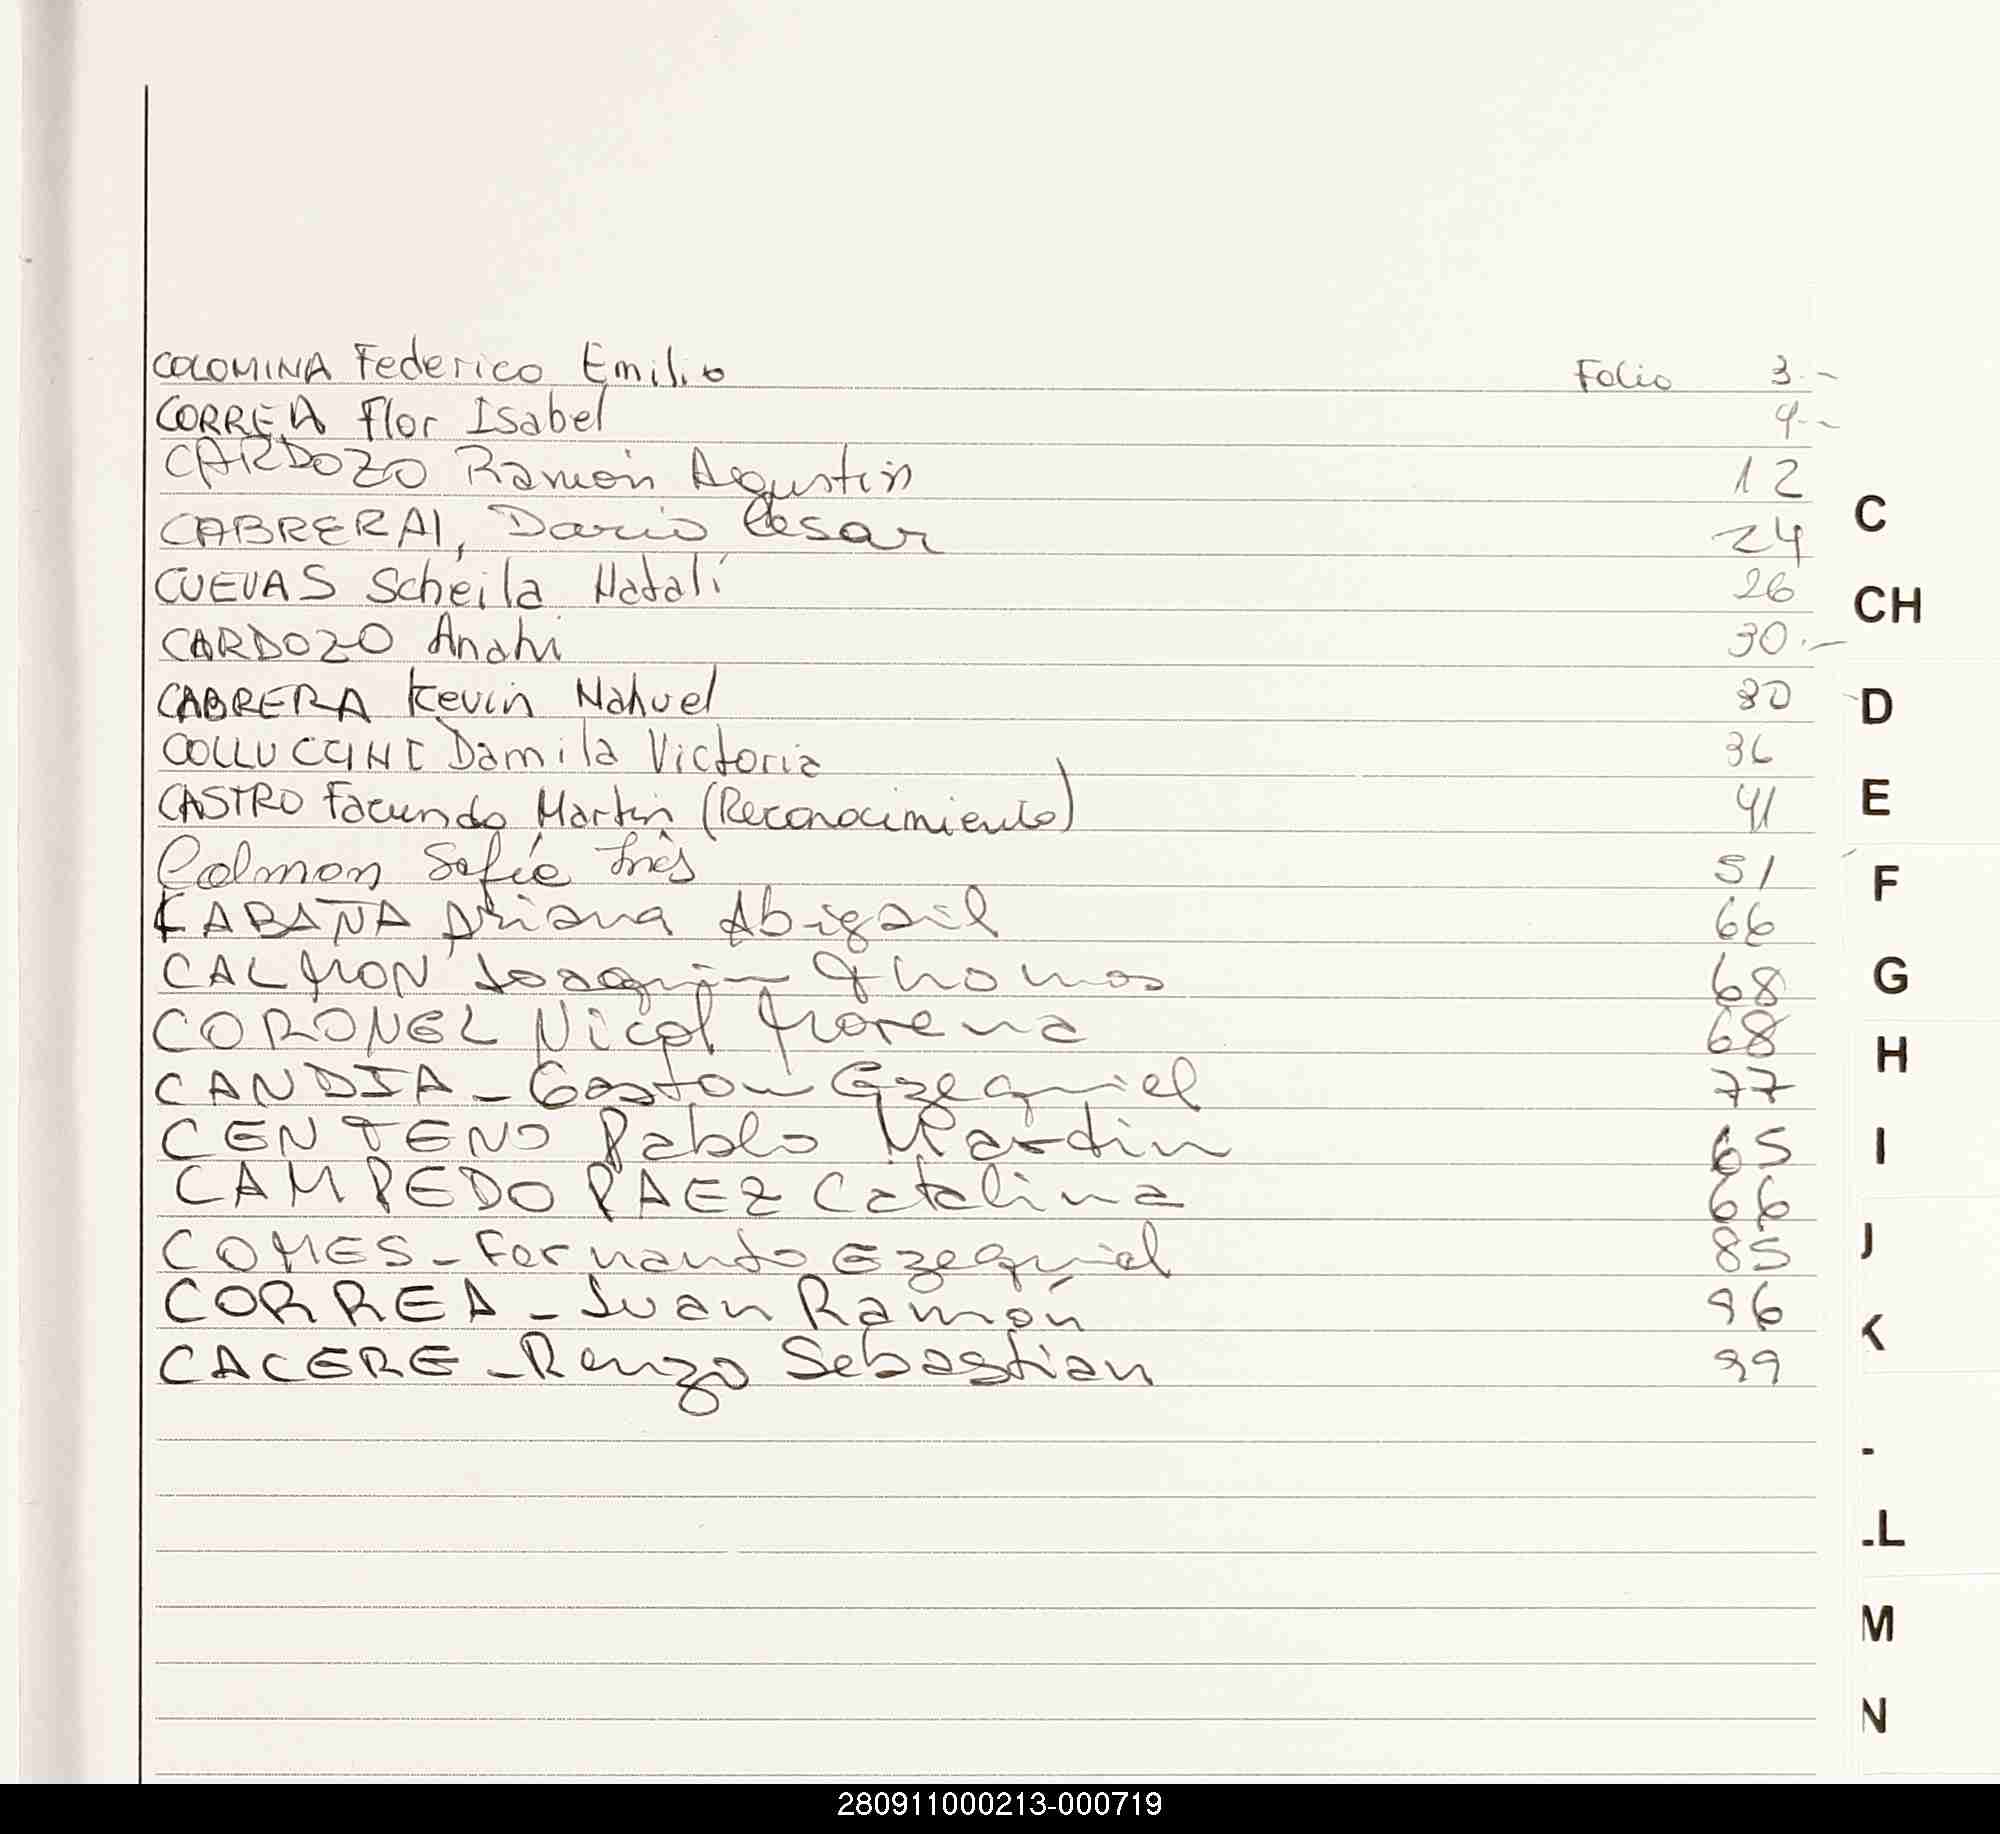 COLOMINA Federico Emilio Folio 3.-
CORREA Flor Isabel 4.-
CARDOZO Ramón Agustin 12
CABRERAI, Dario Cesar 24
CUEVAS Scheila Natalí 26
CARDOZO Anahi 30.-
CABRERA Kevin Nahuel 30
COLLUCCINI Damila Victoria 36
CASTRO Facundo Martin (Reconocimiento) 41
Colmon Sofie Inés 51
CABAÑA Ariana Abigail 66
CALMON Joaquin Thomas 68
CORONEL Nicol Morena 68
CANDIA - Gaston Ezequiel 77
CENTENO Pablo Martin 65
CAMPEDO PAEZ Catalina 66
COMES - Fernando Ezequiel 85
CORREA - Juan Ramón 96
CACERE - Renzo Sebastian 99
C
CH
D
E
F
G
H
I
J
K
L
M
N
280911000213-000719